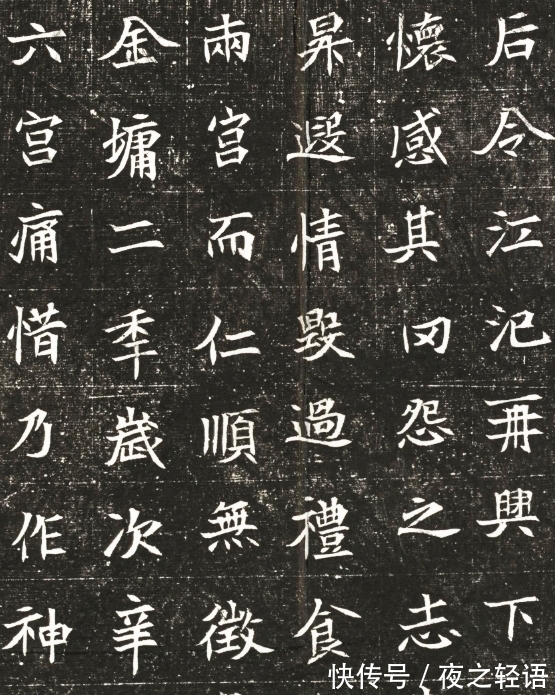 后令江汜再興下
懷感其罔怨之志
昇遐情毀過禮食
兩宫而仁順無徵
金墉二秊歲次辛
六宫痛惜乃作神
快传号 / 夜之轻语